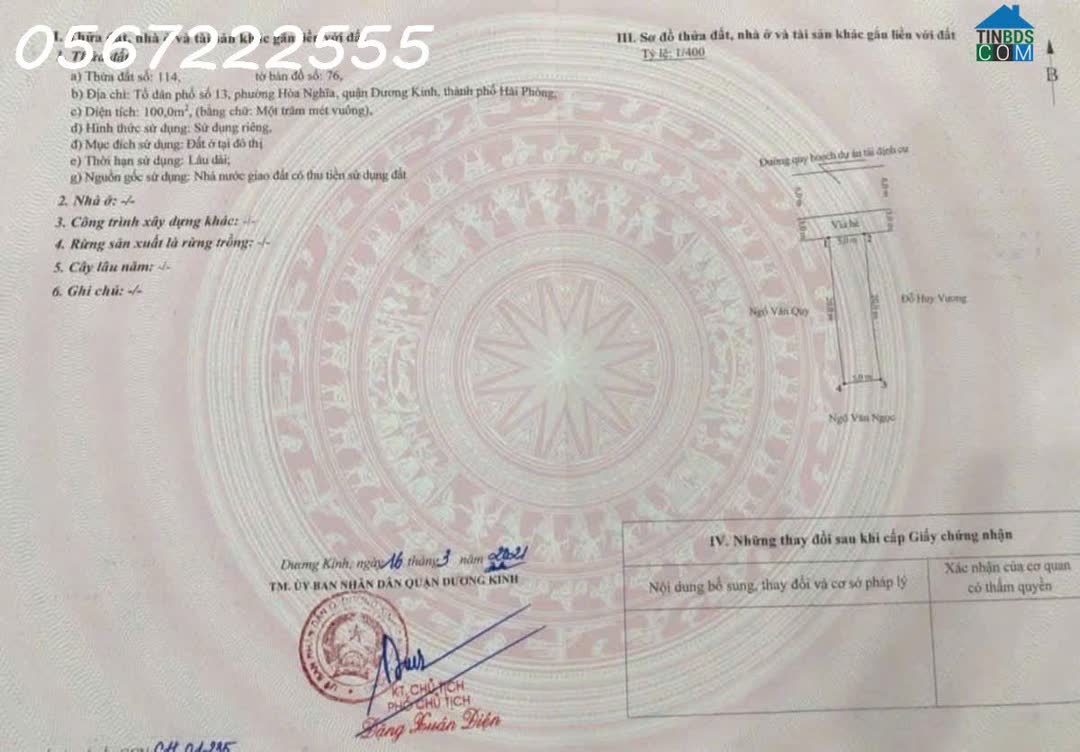 II. Thửa đất, nhà ở và tài sản khác gắn liền với đất
0567222555
1. Thửa đất
a) Thửa đất số: 114, tờ bản đồ số: 76,
b) Địa chỉ: Tổ dân phố số 13, phường Hòa Nghĩa, quận Dương Kinh, thành phố Hải Phòng,
c) Diện tích: 100,0m², (bằng chữ: Một trăm mét vuông),
d) Hình thức sử dụng: Sử dụng riêng,
đ) Mục đích sử dụng: Đất ở tại đô thị
e) Thời hạn sử dụng: Lâu dài;
g) Nguồn gốc sử dụng: Nhà nước giao đất có thu tiền sử dụng đất
2. Nhà ở: -/-
3. Công trình xây dựng khác: -/-
4. Rừng sản xuất là rừng trồng: -/-
5. Cây lâu năm: -/-
6. Ghi chú: -/-
Dương Kinh, ngày 16 tháng 3 năm 2021
TM. ỦY BAN NHÂN DÂN QUẬN DƯƠNG KINH
KT. CHỦ TỊCH
PHÓ CHỦ TỊCH
Đặng Xuân Điện
CH 01235
III. Sơ đồ thửa đất, nhà ở và tài sản khác gắn liền với đất
Tỷ lệ: 1/400
TINBDS
COM
B
Đường quy hoạch dự án tái định cư
6,0 m
6,0 m
3,0 m
Vỉa hè
3,0 m
1
5,0 m
2
Ngô Văn Quy
20,0 m
20,0 m
Đỗ Huy Vương
4
5,0 m
3
Ngô Văn Ngọc
IV. Những thay đổi sau khi cấp Giấy chứng nhận
Nội dung bổ sung, thay đổi và cơ sở pháp lý
Xác nhận của cơ quan
có thẩm quyền